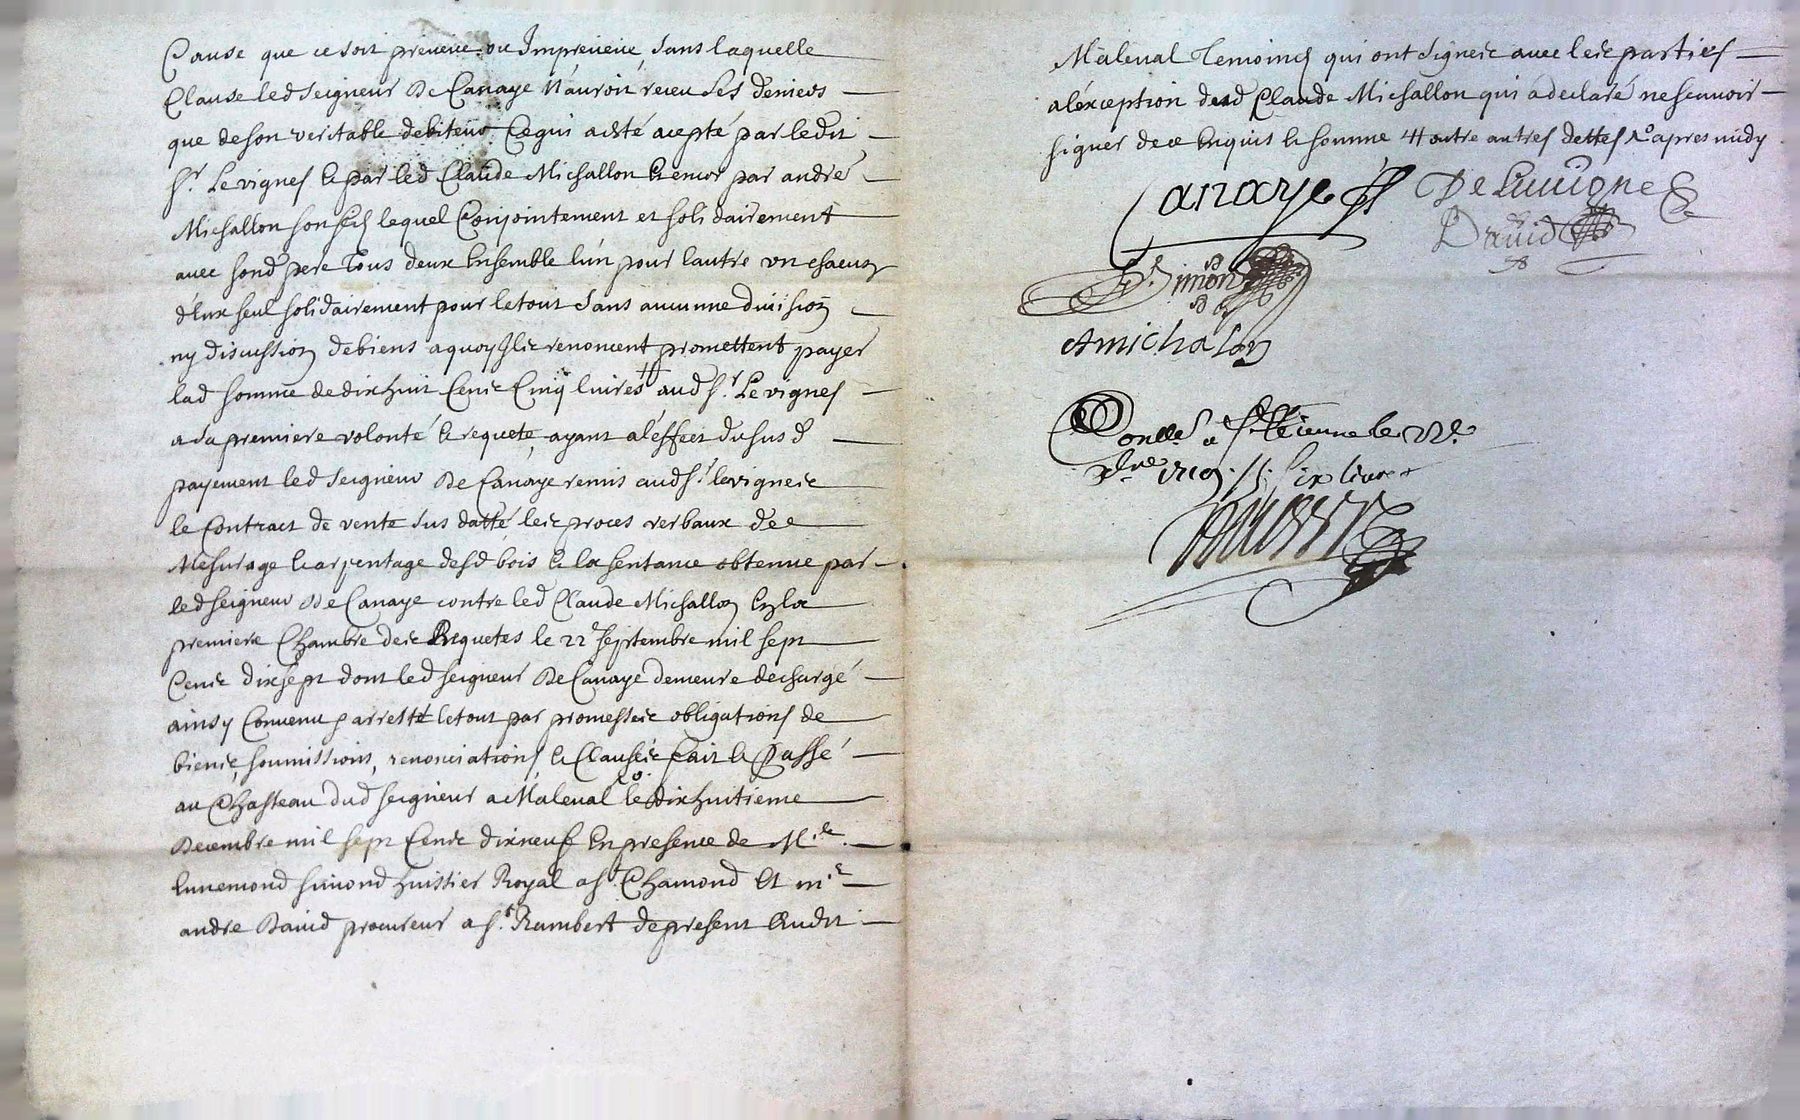 Cause que ce soit preveue ou Impreveue, sans laquelle
Clause led seigneur De Canaye N'auroit receu Ses deniers
que de son veritable debiteur Ce qui a esté acepté par ledit
Sr. Levignes & par led Claude Michallon & encor par andré
Michallon son fils lequel Conjointement et solidairement
avec sond pere Tous deux Ensemble l'un pour lautre un chacun
d'Eux seul solidairement pour le tout sans aucunne division
ny discussion de biens a quoy Ils renoncent promettent payer
lad somme de dix huit Cents Cinq livres # aud Sr. Levignes
a sa premiere volonté & requete, ayant a l'effect du susd
payement led seigneur De Canaye remis aud Sr levignes
le Contract de vente sus datté les proces verbaux de
Mesurage & arpentage desd bois & la sentance obtenue par
led seigneur De Canaye contre led Claude Michallon En la
premiere Chambre des Requetes le 22e septembre mil sept
Cents dix sept dont led seigneur De Canaye demeure dechargé
ainsy Convenu & arresté le tout par promesses obligations de
biens, soumissions, renonciations & Clauses fait & Passé
au Chasteau dud seigneur a Maleval le dix huitieme
Decembre mil sept Cents dix neuf En presence de Me.
Ennemond simond huissier Royal a St. Chamond Et me
andre David procureur a St. Rambert de present Audit
Maleval Temoins qui ont signés avec les parties
a l'exception dud Claude Michallon qui a declaré ne scavoir
signer de ce Enquis & somme # outre autres dettes No apres midy
Canaye De Levigne
David
Simon
A michalon
Con‌llé a St. Etienne le 22e.
Xbre 1719. six livres